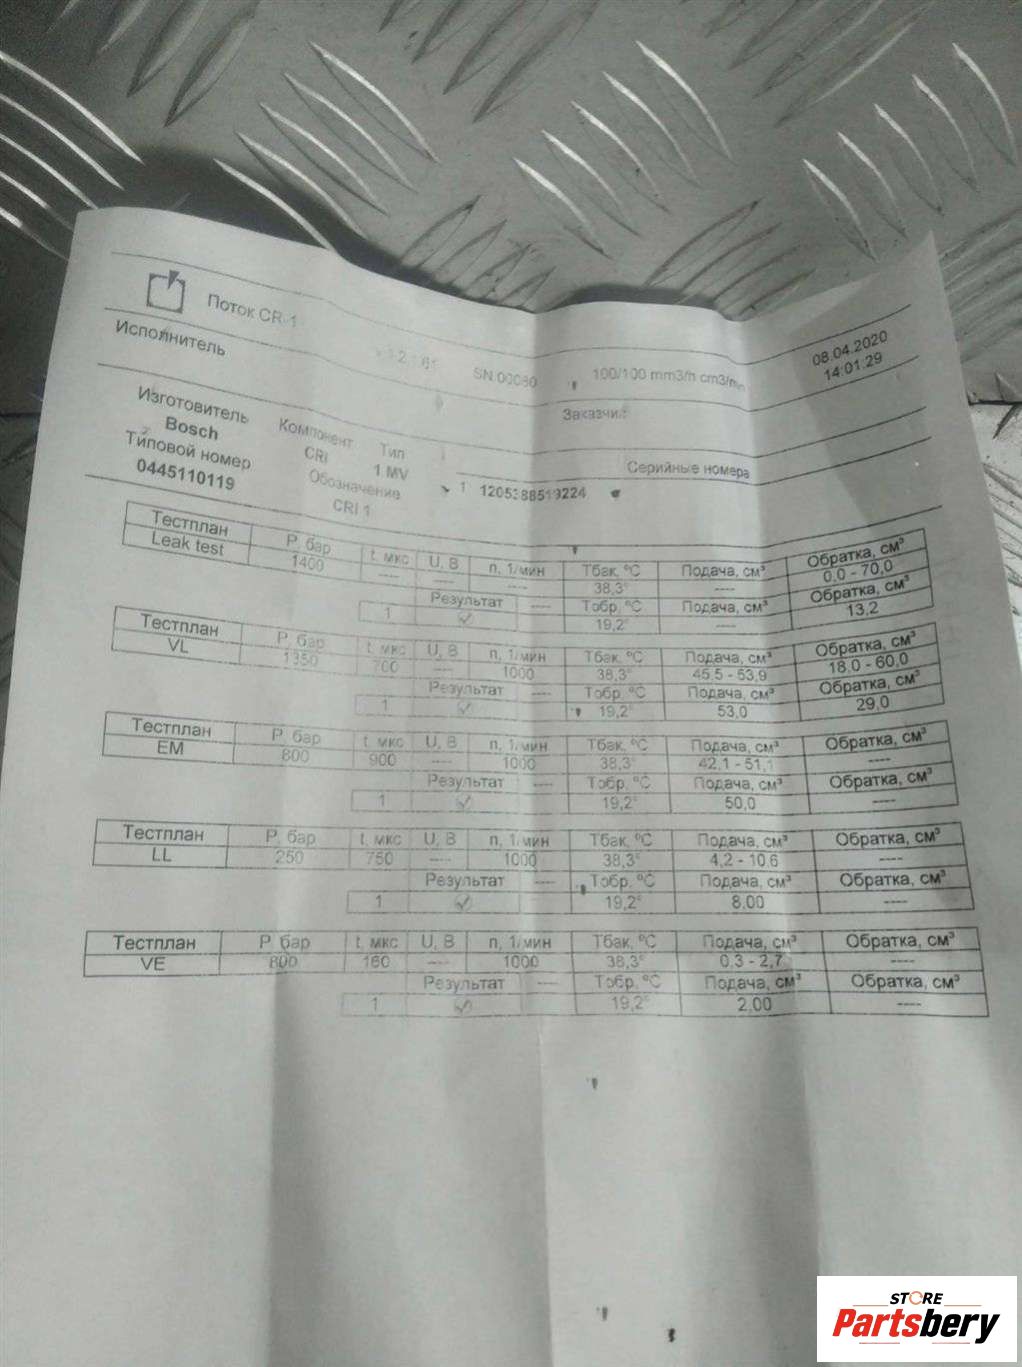 Поток CR-1 SN 00060 100/100 mm3/h cm3/min 08.04.2020
14:01:29
Исполнитель Заказчик
Изготовитель Компонент Тип Серийные номера
Bosch CRI 1 MV 1
Типовой номер Обозначение
0445110119 CRI 1
Тестплан P, бар t, мкс U, В n, 1/мин Tбак, °C Подача, см³ Обратка, см³
Leak test 1400 ---- ---- ---- 38,3° ---- 0,0 - 70,0
Результат ---- Tобр, °C Подача, см³ Обратка, см³
1 ✓ 19,2° ---- 13,2
Тестплан P, бар t, мкс U, В n, 1/мин Tбак, °C Подача, см³ Обратка, см³
VL 1350 700 ---- 1000 38,3° 45,5 - 53,9 18,0 - 60,0
Результат ---- Tобр, °C Подача, см³ Обратка, см³
1 ✓ 19,2° 53,0 29,0
Тестплан P, бар t, мкс U, В n, 1/мин Tбак, °C Подача, см³ Обратка, см³
EM 800 900 ---- 1000 38,3° 42,1 - 51,1 ----
Результат ---- Tобр, °C Подача, см³ Обратка, см³
1 ✓ 19,2° 50,0 ----
Тестплан P, бар t, мкс U, В n, 1/мин Tбак, °C Подача, см³ Обратка, см³
LL 250 750 ---- 1000 38,3° 4,2 - 10,6 ----
Результат ---- Tобр, °C Подача, см³ Обратка, см³
1 ✓ 19,2° 8,00 ----
Тестплан P, бар t, мкс U, В n, 1/мин Tбак, °C Подача, см³ Обратка, см³
VE 800 160 ---- 1000 38,3° 0,3 - 2,7 ----
Результат ---- Tобр, °C Подача, см³ Обратка, см³
1 ✓ 19,2° 2,00 ----
STORE
Partsbery